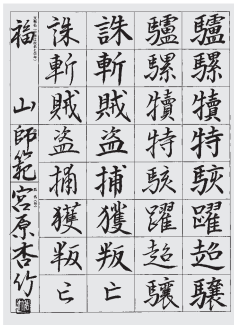 驢騾犢特駭躍超驤
驢騾犢特駭躍超驤
誅斬賊盗捕獲叛亡
誅斬賊盗捕獲叛亡
福山 師範 宮原杏竹